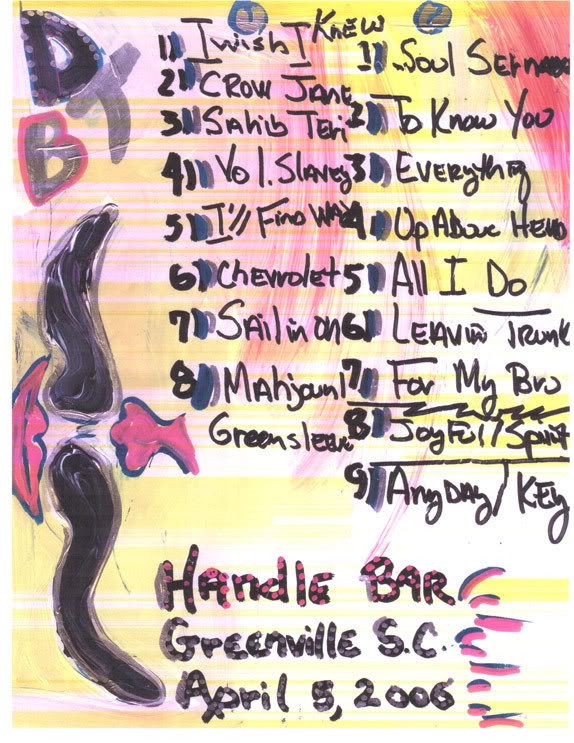 DTB
1 2
1 I wish I Knew
2 Crow Jane
3 Sahib Teri
4 Vo 1. Slavey
5 I'll Find Way
6 Chevrolet
7 Sailin On
8 Mahjoun
Greensleeve
1 Soul Serenade
2 To Know You
3 Everything
4 Up Above Head
5 All I Do
6 Leavin Trunk
7 For My Bro
8 Joyful / Spirit
9 Anyday / Key
Handle Bar
Greenville S.C.
April 5, 2006